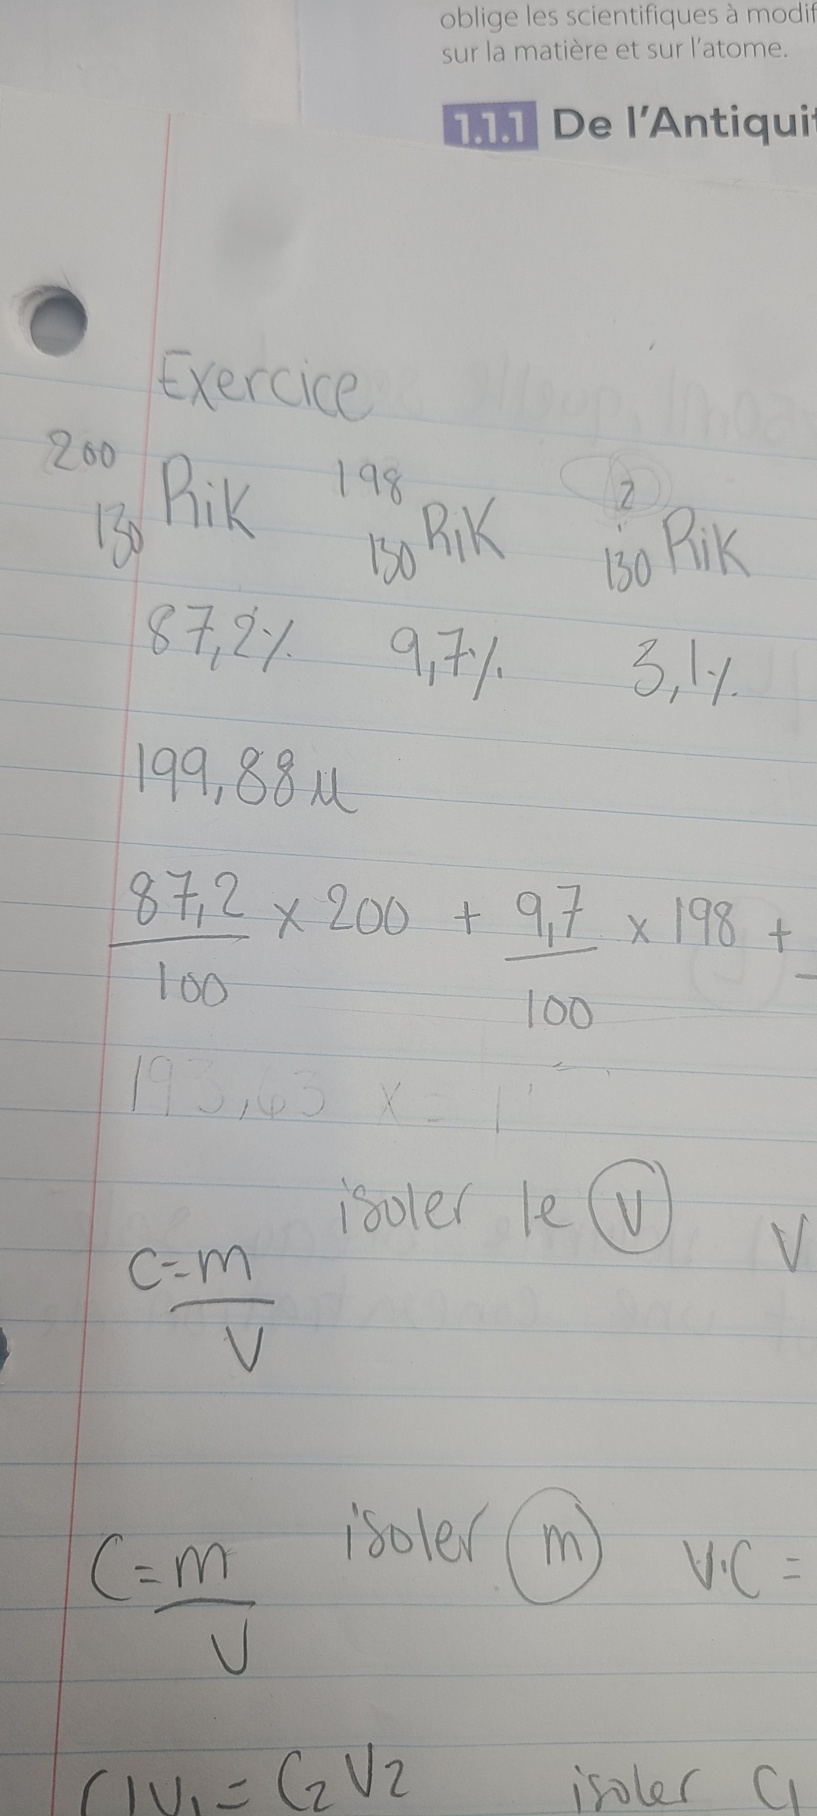 oblige les scientifiques à modif
sur la matière et sur l'atome.
1.1.1 De l'Antiquit
Exercice
200 130 Rik 198 130 Rik ? 130 Rik
87,2% 9,7% 3,1%
199,88 u
87,2/100 x 200 + 9,7/100 x 198 +
193,63 x = 1
C = m/V isoler le V V
C = m/V isoler m V·C =
C1V1 = C2V2 isoler C1